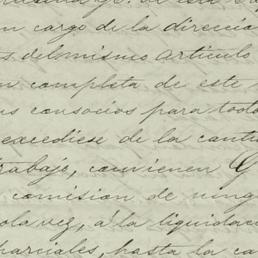 en cargo de la direcció
s del mismo artículo
n completa de este
us consocios para todo
excediese de la canti
trabajo, convienen
comision de ning
ola vez, á la liquidac
parciales, hasta la ca